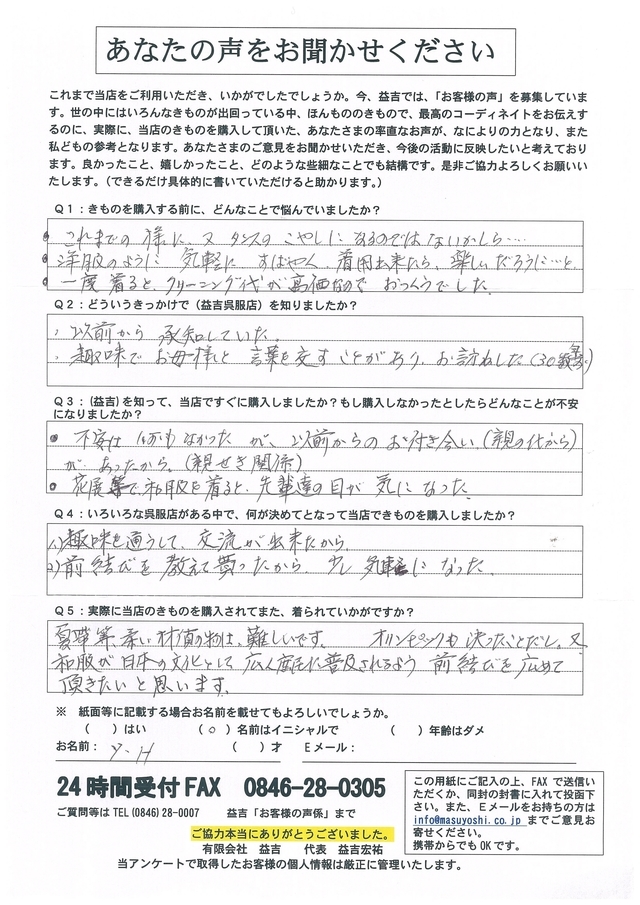 あなたの声をお聞かせください
これまで当店をご利用いただき、いかがでしたでしょうか。今、益吉では、「お客様の声」を募集していま
す。世の中にはいろんなきものが出回っている中、ほんもののきもので、最高のコーディネイトをお伝えす
るのに、実際に、当店のきものを購入して頂いた、あなたさまの率直なお声が、なによりの力となり、また
私どもの参考となります。あなたさまのご意見をお聞かせいただき、今後の活動に反映したいと考えており
ます。良かったこと、嬉しかったこと、どのような些細なことでも結構です。是非ご協力よろしくお願いい
たします。（できるだけ具体的に書いていただけると助かります。）
Q1：きものを購入する前に、どんなことで悩んでいましたか？
・これまでの様に、又タンスのこやしになるのではないかしら‥‥
・洋服のように気軽にすばやく、着用出来たら、楽しいだろうに…と、
・一度着ると、クリーニング代が高価なのでおっくうでした。
Q2：どういうきっかけで（益吉呉服店）を知りましたか？
・以前から承知していた。
・趣味でお母様と言葉を交すことがあり、お訪ねした（30
Q3：(益吉)を知って、当店ですぐに購入しましたか？もし購入しなかったとしたらどんなことが不安
になりましたか？
・不安は何もなかったが、以前からのお付き合い（親の代から）
があったから。（親せき関係）
・花展等で和服を着ると、先輩達の目が気になった。
Q4：いろいろな呉服店がある中で、何が決めてとなって当店できものを購入しましたか？
1)趣味を通うして、交流が出来たから
2)前結びを教えて貰ったから、少し気軽になった。
Q5：実際に当店のきものを購入されてまた、着られていかがですか？
夏帯等、柔い材質の物は、難しいです。オリンピックも決ったことだし、又
和服が日本の文化として広く庶民に普及されるよう前結びを広めて
頂きたいと思います。
※ 紙面等に記載する場合お名前を載せてもよろしいでしょうか。
（ ）はい （○）名前はイニシャルで （ ）年齢はダメ
お名前： Y-H （ ）才 Eメール：
24時間受付FAX 0846-28-0305
ご質問等は TEL(0846)28-0007 益吉「お客様の声係」まで
ご協力本当にありがとうございました。
有限会社 益吉 代表 益吉宏祐
この用紙にご記入の上、FAX で送信い
ただくか、同封の封書に入れて投函下
さい。また、Eメールをお持ちの方は
info@masuyoshi.co.jp までご意見お
寄せください。
携帯からでもOKです。
当アンケートで取得したお客様の個人情報は厳正に管理いたします。